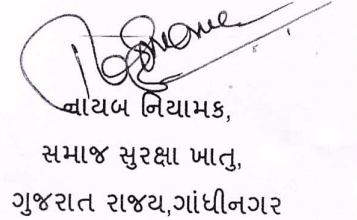 નાયબ નિયામક,
સમાજ સુરક્ષા ખાતુ,
ગુજરાત રાજય,ગાંધીનગર